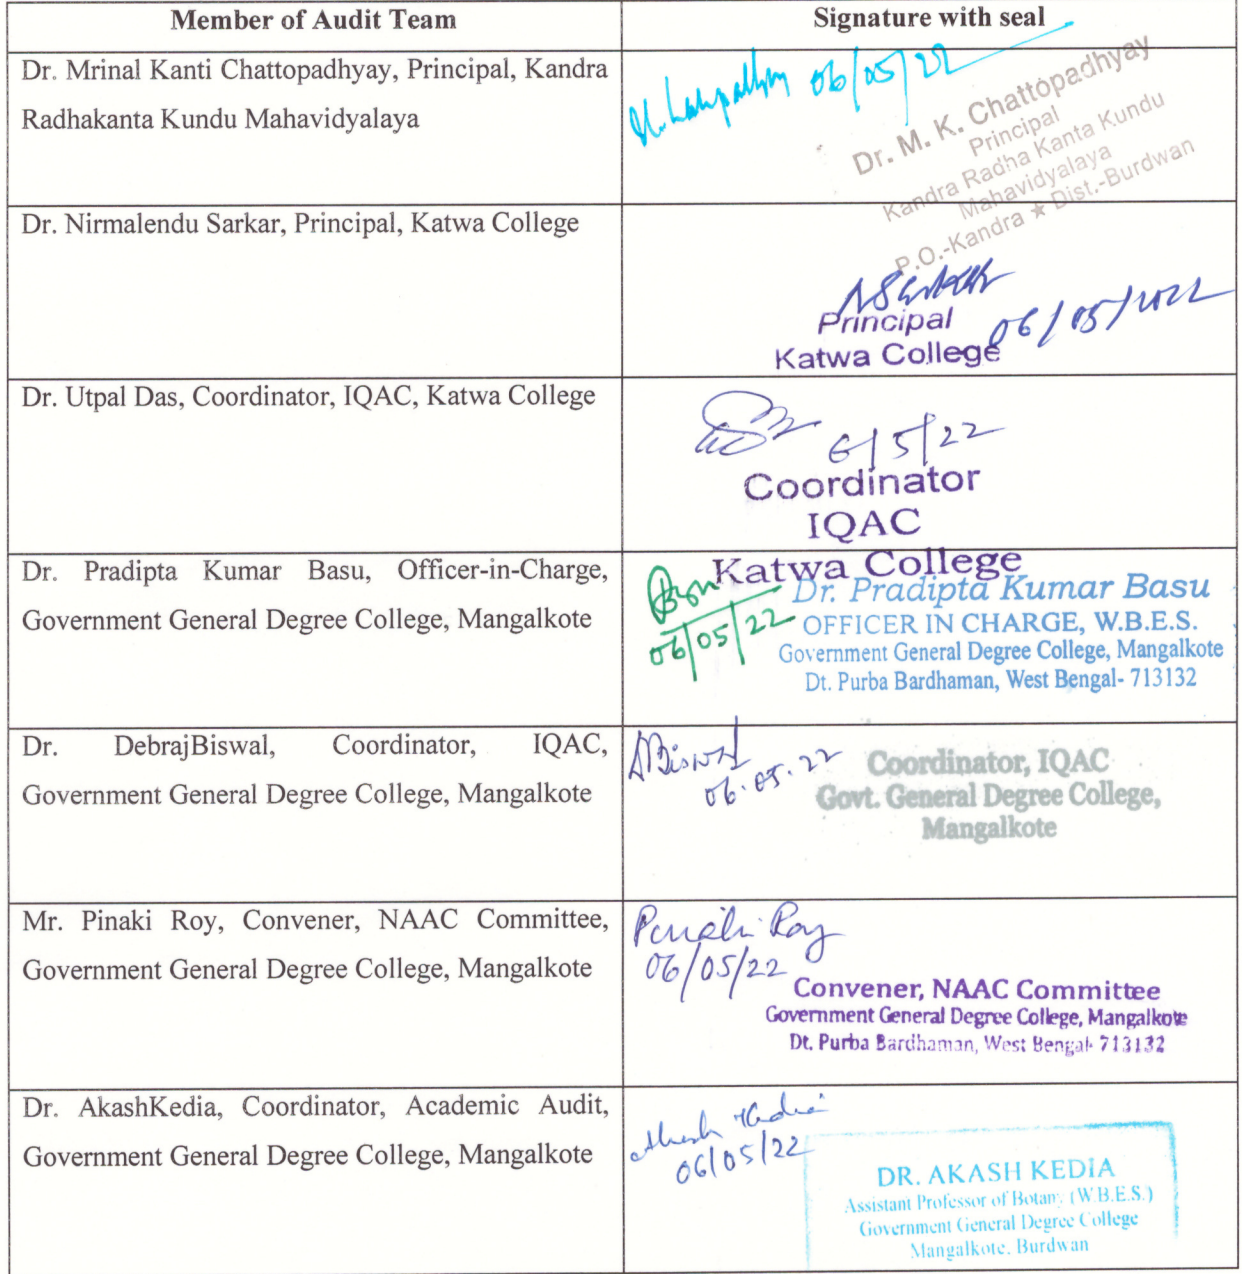 Member of Audit Team
Signature with seal
Dr. Mrinal Kanti Chattopadhyay, Principal, Kandra
Radhakanta Kundu Mahavidyalaya
06/05/22
Dr. M. K. Chattopadhyay
Principal
Kandra Radha Kanta Kundu
Mahavidyalaya
P.O.-Kandra ★ Dist.-Burdwan
Dr. Nirmalendu Sarkar, Principal, Katwa College
NSarkar
06/05/2022
Principal
Katwa College
Dr. Utpal Das, Coordinator, IQAC, Katwa College
6/5/22
Coordinator
IQAC
Katwa College
Dr. Pradipta Kumar Basu, Officer-in-Charge,
Government General Degree College, Mangalkote
06/05/22
Dr. Pradipta Kumar Basu
OFFICER IN CHARGE, W.B.E.S.
Government General Degree College, Mangalkote
Dt. Purba Bardhaman, West Bengal- 713132
Dr. DebrajBiswal, Coordinator, IQAC,
Government General Degree College, Mangalkote
DBiswal
06.05.22
Coordinator, IQAC
Govt. General Degree College,
Mangalkote
Mr. Pinaki Roy, Convener, NAAC Committee,
Government General Degree College, Mangalkote
Pinaki Roy
06/05/22
Convener, NAAC Committee
Government General Degree College, Mangalkote
Dt. Purba Bardhaman, West Bengal- 713132
Dr. AkashKedia, Coordinator, Academic Audit,
Government General Degree College, Mangalkote
Akash Kedia
06/05/22
DR. AKASH KEDIA
Assistant Professor of Botany (W.B.E.S.)
Government General Degree College
Mangalkote, Burdwan